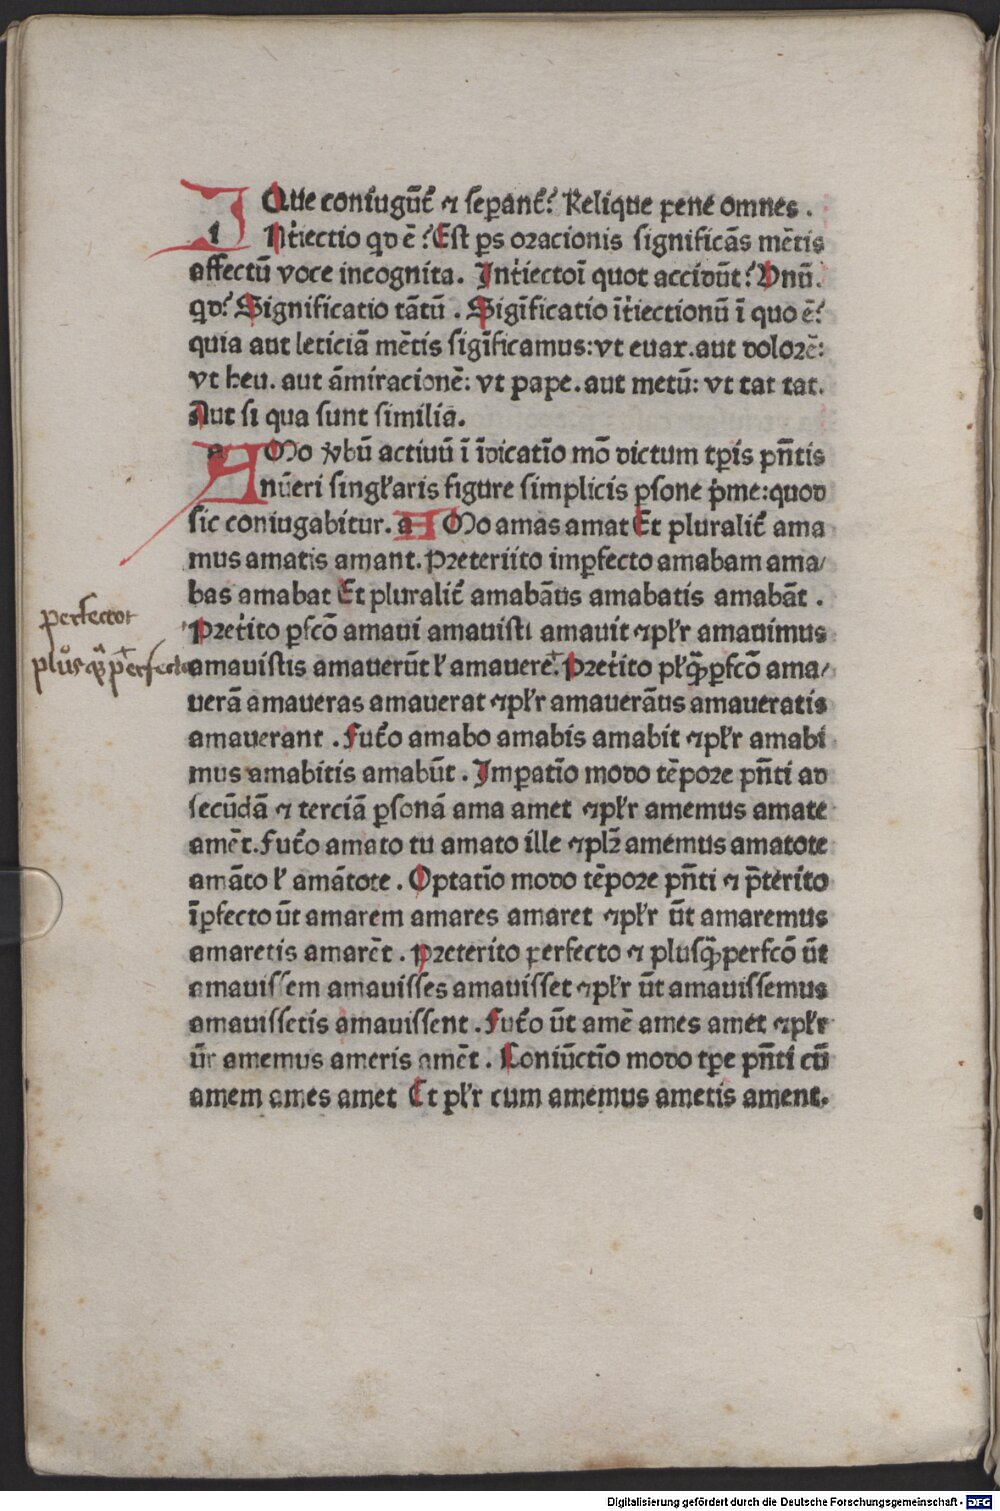 Que coniugūt᷒ ⁊ seꝑant᷒? Relique pene omnes .
i Nt᷒iectio qd ē? Est ꝑs oracionis significās mētis
affectū voce incognita. Int᷒iectoī quot accidūt? Vnū.
qd? Significatio tātū . Sigīficatio īt᷒iectionū ī quo ē?
quia aut leticiā mētis sigīficamus: vt euax. aut dolorē:
vt heu. aut āmiracionē: vt pape. aut metū: vt tat tat.
Aut si qua sunt similia.
a Mo v̓bū actiuū ī īdicatīo mō dictum tꝑis pn̄tis
nūeri singłaris figure simplicis ꝑsone p̓me: quod
sic coniugabitur. a Mo amas amat Et pluralit᷒ ama
mus amatis amant. Preteriito imꝑfecto amabam ama/
bas amabat Et pluralit᷒ amabāus amabatis amabāt .
perfector
Pret᷒ito ꝑfcō amaui amauisti amauit ⁊pł̓r amauimus
plus̓ꝙ̄ perfecto
amauistis amauerūt ł amauere. Pret᷒ito płꝙ̄ꝑfcō ama/
uerā amaueras amauerat ⁊pł̓r amauerāus amaueratis
amauerant . Fut᷒o amabo amabis amabit ⁊pł̓r amabi
mus amabitis amabūt . Imꝑatīo modo tēpore pn̄ti ad
secūdā ⁊ terciā ꝑsonā ama amet ⁊pł̓r amemus amate
amēt. Fut᷒o amato tu amato ille ⁊plꝛ amemus amatote
amāto ł amātote . Optatīo modo tēpore pn̄ti ⁊ p̄terito
īꝑfecto ūt amarem amares amaret ⁊pł̓r ūt amaremus
amaretis amarēt . Preterito perfecto ⁊ plusꝙ̄perfcō ūt
amauissem amauisses amauisset ⁊pł̓r ūt amauissemus
amauissetis amauissent . Fut᷒o ūt amē ames amet ⁊pł̓r
ūt amemus ametis amēt . Coniūctīo modo tꝑe pn̄ti cū
amem ames amet Et pł̓r cum amemus ametis ament.
Digitalisierung gefördert durch die Deutsche Forschungsgemeinschaft - DFG